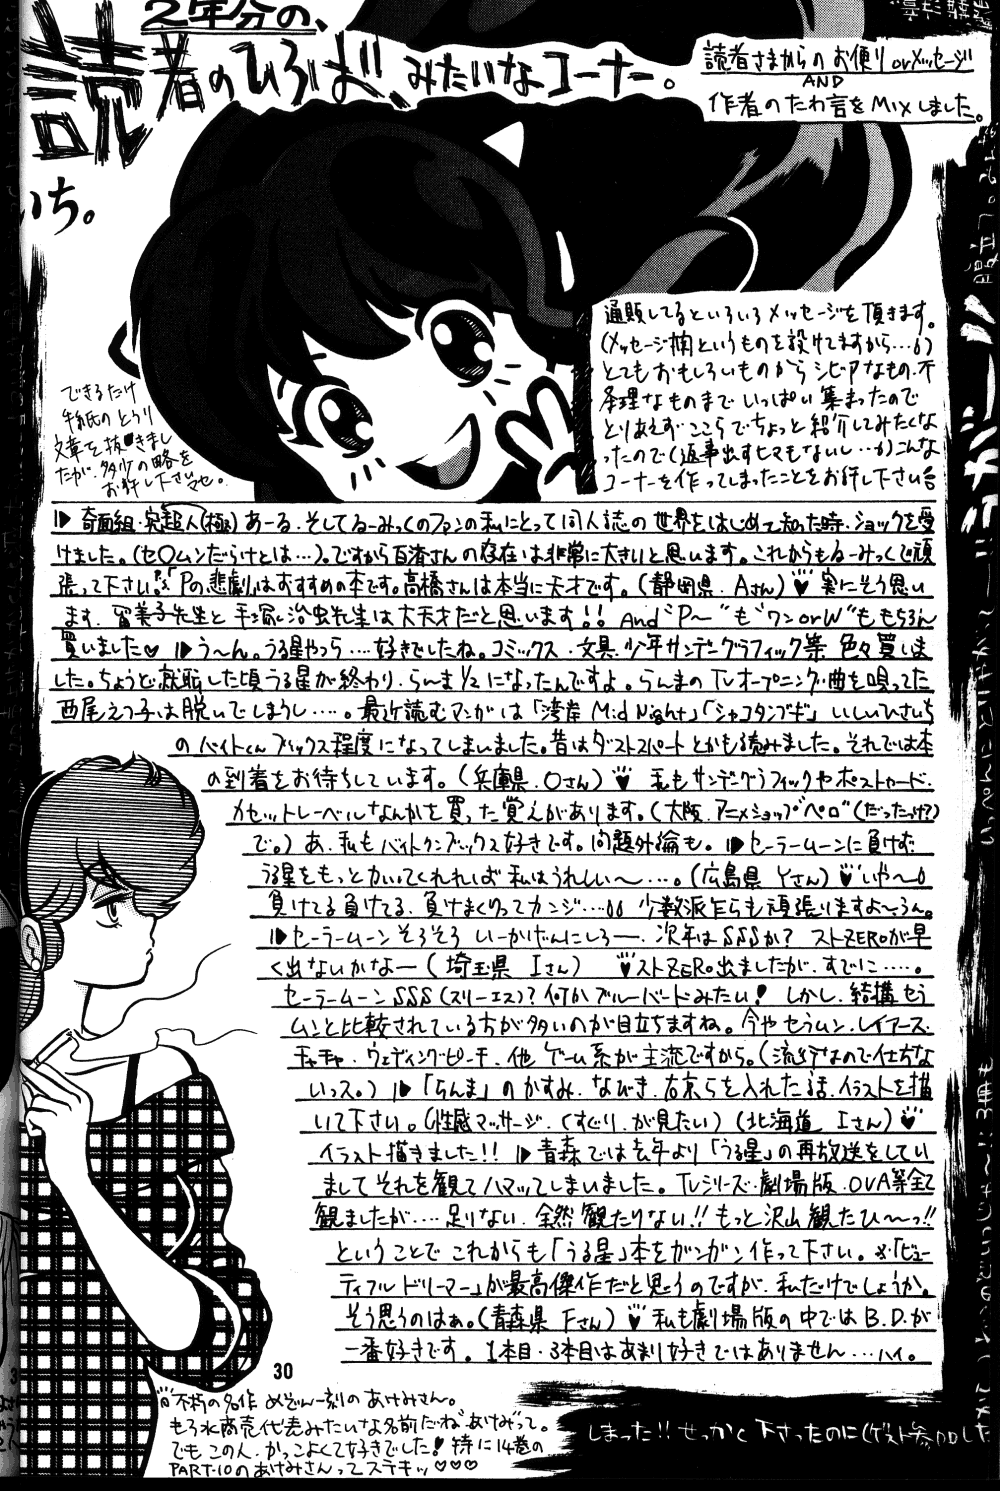 2年分の、
読者のひろば、みたいなコーナー。
いち。
読者さまからのお便りorメッセージ
AND
作者のたわ言をMIXしました。
通販してるといろいろメッセージを頂きます。
(メッセージ欄というものを設けてますから…)
とてもおもしろいものからシビアなもの、不
条理なものまでいっぱい集まったので
とりあえずここらでちょっと紹介してみたくな
ったので(返事出すヒマもないし…)こんな
コーナーを作ってしまったことをお許し下さい
できるだけ
手紙のとうり
文章を抜きまし
たが、多少の略を
お許し下さいマセ。
奇面組・究極超人あーる、そしてるーみっくのファンの私にとって同人誌の世界をはじめて知った時、ショックを受
けました。(セ〇ムンだらけとは…)。ですから百済さんの存在は非常に大きいと思います。これからもるーみっくで頑
張って下さい。「Pの悲劇」はおすすめの本です。高橋さんは本当に天才です。(静岡県 Aさん)♥実にそう思い
ます、留美子先生と手塚治虫先生は大天才だと思います!! And “P〜”も“ワンorW”ももちろん
買いました♡ う〜ん。うる星やつら…好きでしたね。コミックス・文具、少年サンデーグラフィック等 色々買いま
した。ちょうど就職した頃うる星が終わり、らんま1/2になったんですよ。らんまのTVオープニング曲を唄ってた
西尾えつ子は脱いでしまうし…。最近読むマンガは「湾岸 Mid Night」「シャコタンブギ」いしいひさいち
のバイトくんブックス程度になってしまいました。昔はダストスパートとかも読みました。それでは本
の到着をお待ちしています。(兵庫県、Oさん)♥私もサンデーグラフィックやポストカード、
カセットレーベルなんかを買った覚えがあります。(大阪、アニメショップ“ペロ”(だったっけ?)
で。)あ、私もバイトクンブックス好きです。問題外論も。セーラームーンに負けず
うる星をもっとかいてくれれば私はうれしい〜…。(広島県Yさん)♥いや〜
負けてる負けてる、負けまくってカンジ… 少数派乍らも頑張りますよ〜、うん。
セーラームーンそろそろいーかげんにしろー、次年はSSSか? ストZEROが早
く出ないかなー(埼玉県 Iさん) ♥ストZERO出ましたが、すでに…。
セーラームーンSSS(スリーエス)?何かブルーバードみたい! しかし、結構セラ
ムンと比較されている方が多いのが目立ちますね。今やセラムン、レイアース、
チャチャ、ウェディングピーチ、他、ゲーム系が主流ですから。(流行なので仕方な
いっス。)「らんま」のかすみ、なびき、右京らを入れた話、イラストを描
いて下さい。(性感マッサージ、くすぐり、が見たい)(北海道 Iさん)♥
イラスト描きました!! 青森では去年より「うる星」の再放送をしてい
ましてそれを観てハマッてしまいました。TVシリーズ・劇場版・OVA等全て
観ましたが…足りない、全然観たりない!!もっと沢山観たひ〜っ!!
ということでこれからも「うる星」本をガンガン作って下さい。※「ビュー
ティフルドリーマー」が最高傑作だと思うのですが、私だけでしょうか。
そう思うのはぁ。(青森県 Fさん)♥私も劇場版の中ではB.D.が
一番好きです。1本目・3本目はあまり好きではありません…ハイ。
30
不朽の名作 めぞん一刻のあけみさん。
もろ水商売代表みたいな名前だね“あけみ”って。
でもこの人、かっこよくて好きでした!特に14巻の
PART・10のあけみさんってステキッ♡♡♡
しまった!! せっかく下さったのに(ゲスト参加した